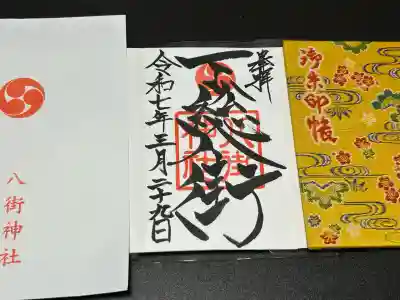 奉拝
下総八街
八街神社
令和七年三月二十九日
八街神社
御朱印帳